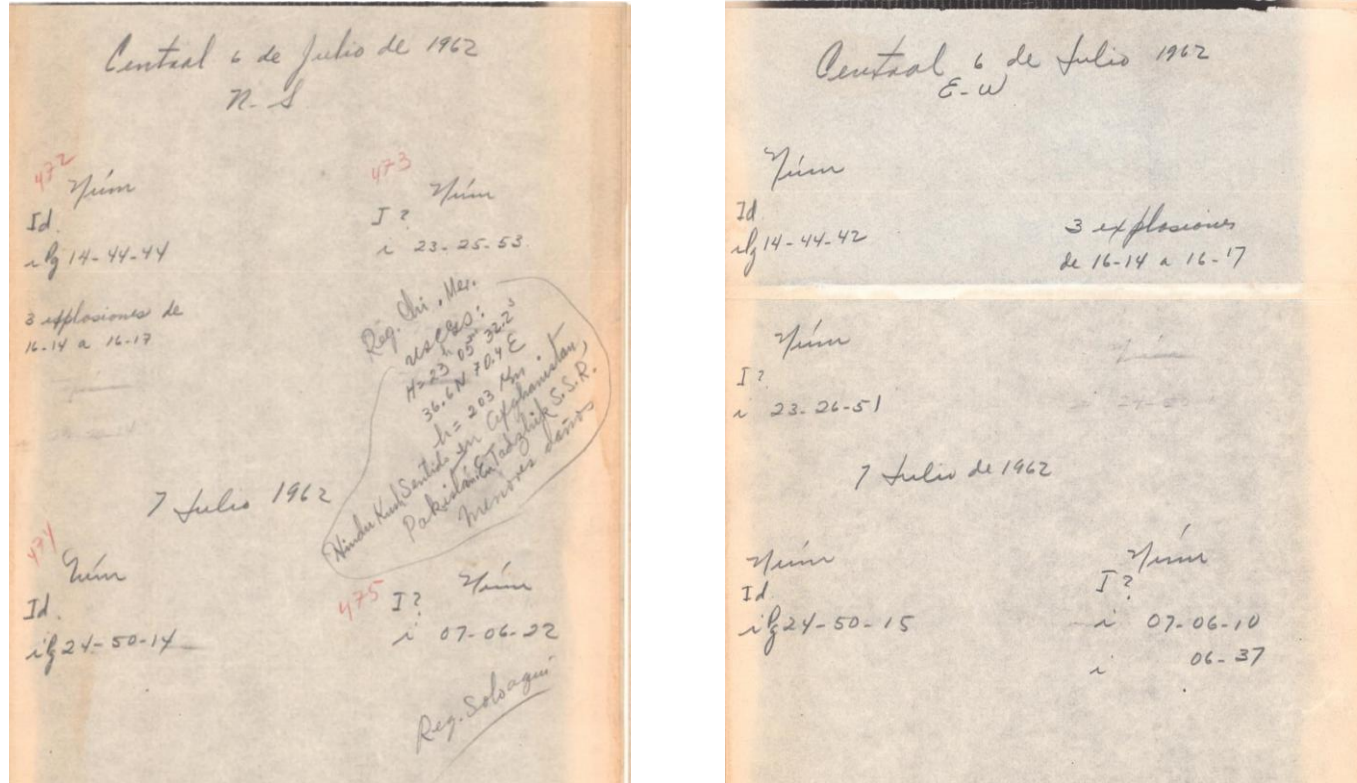 Central 6 de Julio de 1962
N-S
472
Núm
Id.
iPg 14-44-44
3 explosiones de
16-14 a 16-17
473
Núm
I?
i 23-25-53.
Reg. Chi. Mer.
USCGS:
H=23h 05m 32.2s
36.6 N 70.4 E
h= 203 Km
Hindu Kush Sentido en Afghanistan,
Pakistán E Tadzhik S.S.R.
menores daños
7 Julio 1962
474
Núm
Id.
iPg 24-50-14
475
Núm
I?
i 07-06-22
Reg. Solo aqui
Central 6 de Julio 1962
E-W
Núm
Id
iPg 14-44-42
3 explosiones
de 16-14 a 16-17
Núm
I?
i 23-26-51
7 Julio de 1962
Núm
Id.
iPg 24-50-15
Núm
I?
i 07-06-10
i 06-37